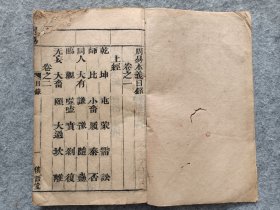 周易本義目錄
卷之一
上經
乾 坤 屯 蒙 需 訟
師 比 小畜 履 泰 否
同人 大有 謙 豫 隨 蠱
臨 觀 噬嗑 賁 剝 復
无妄 大畜 頤 大過 坎 離
卷之二
目錄